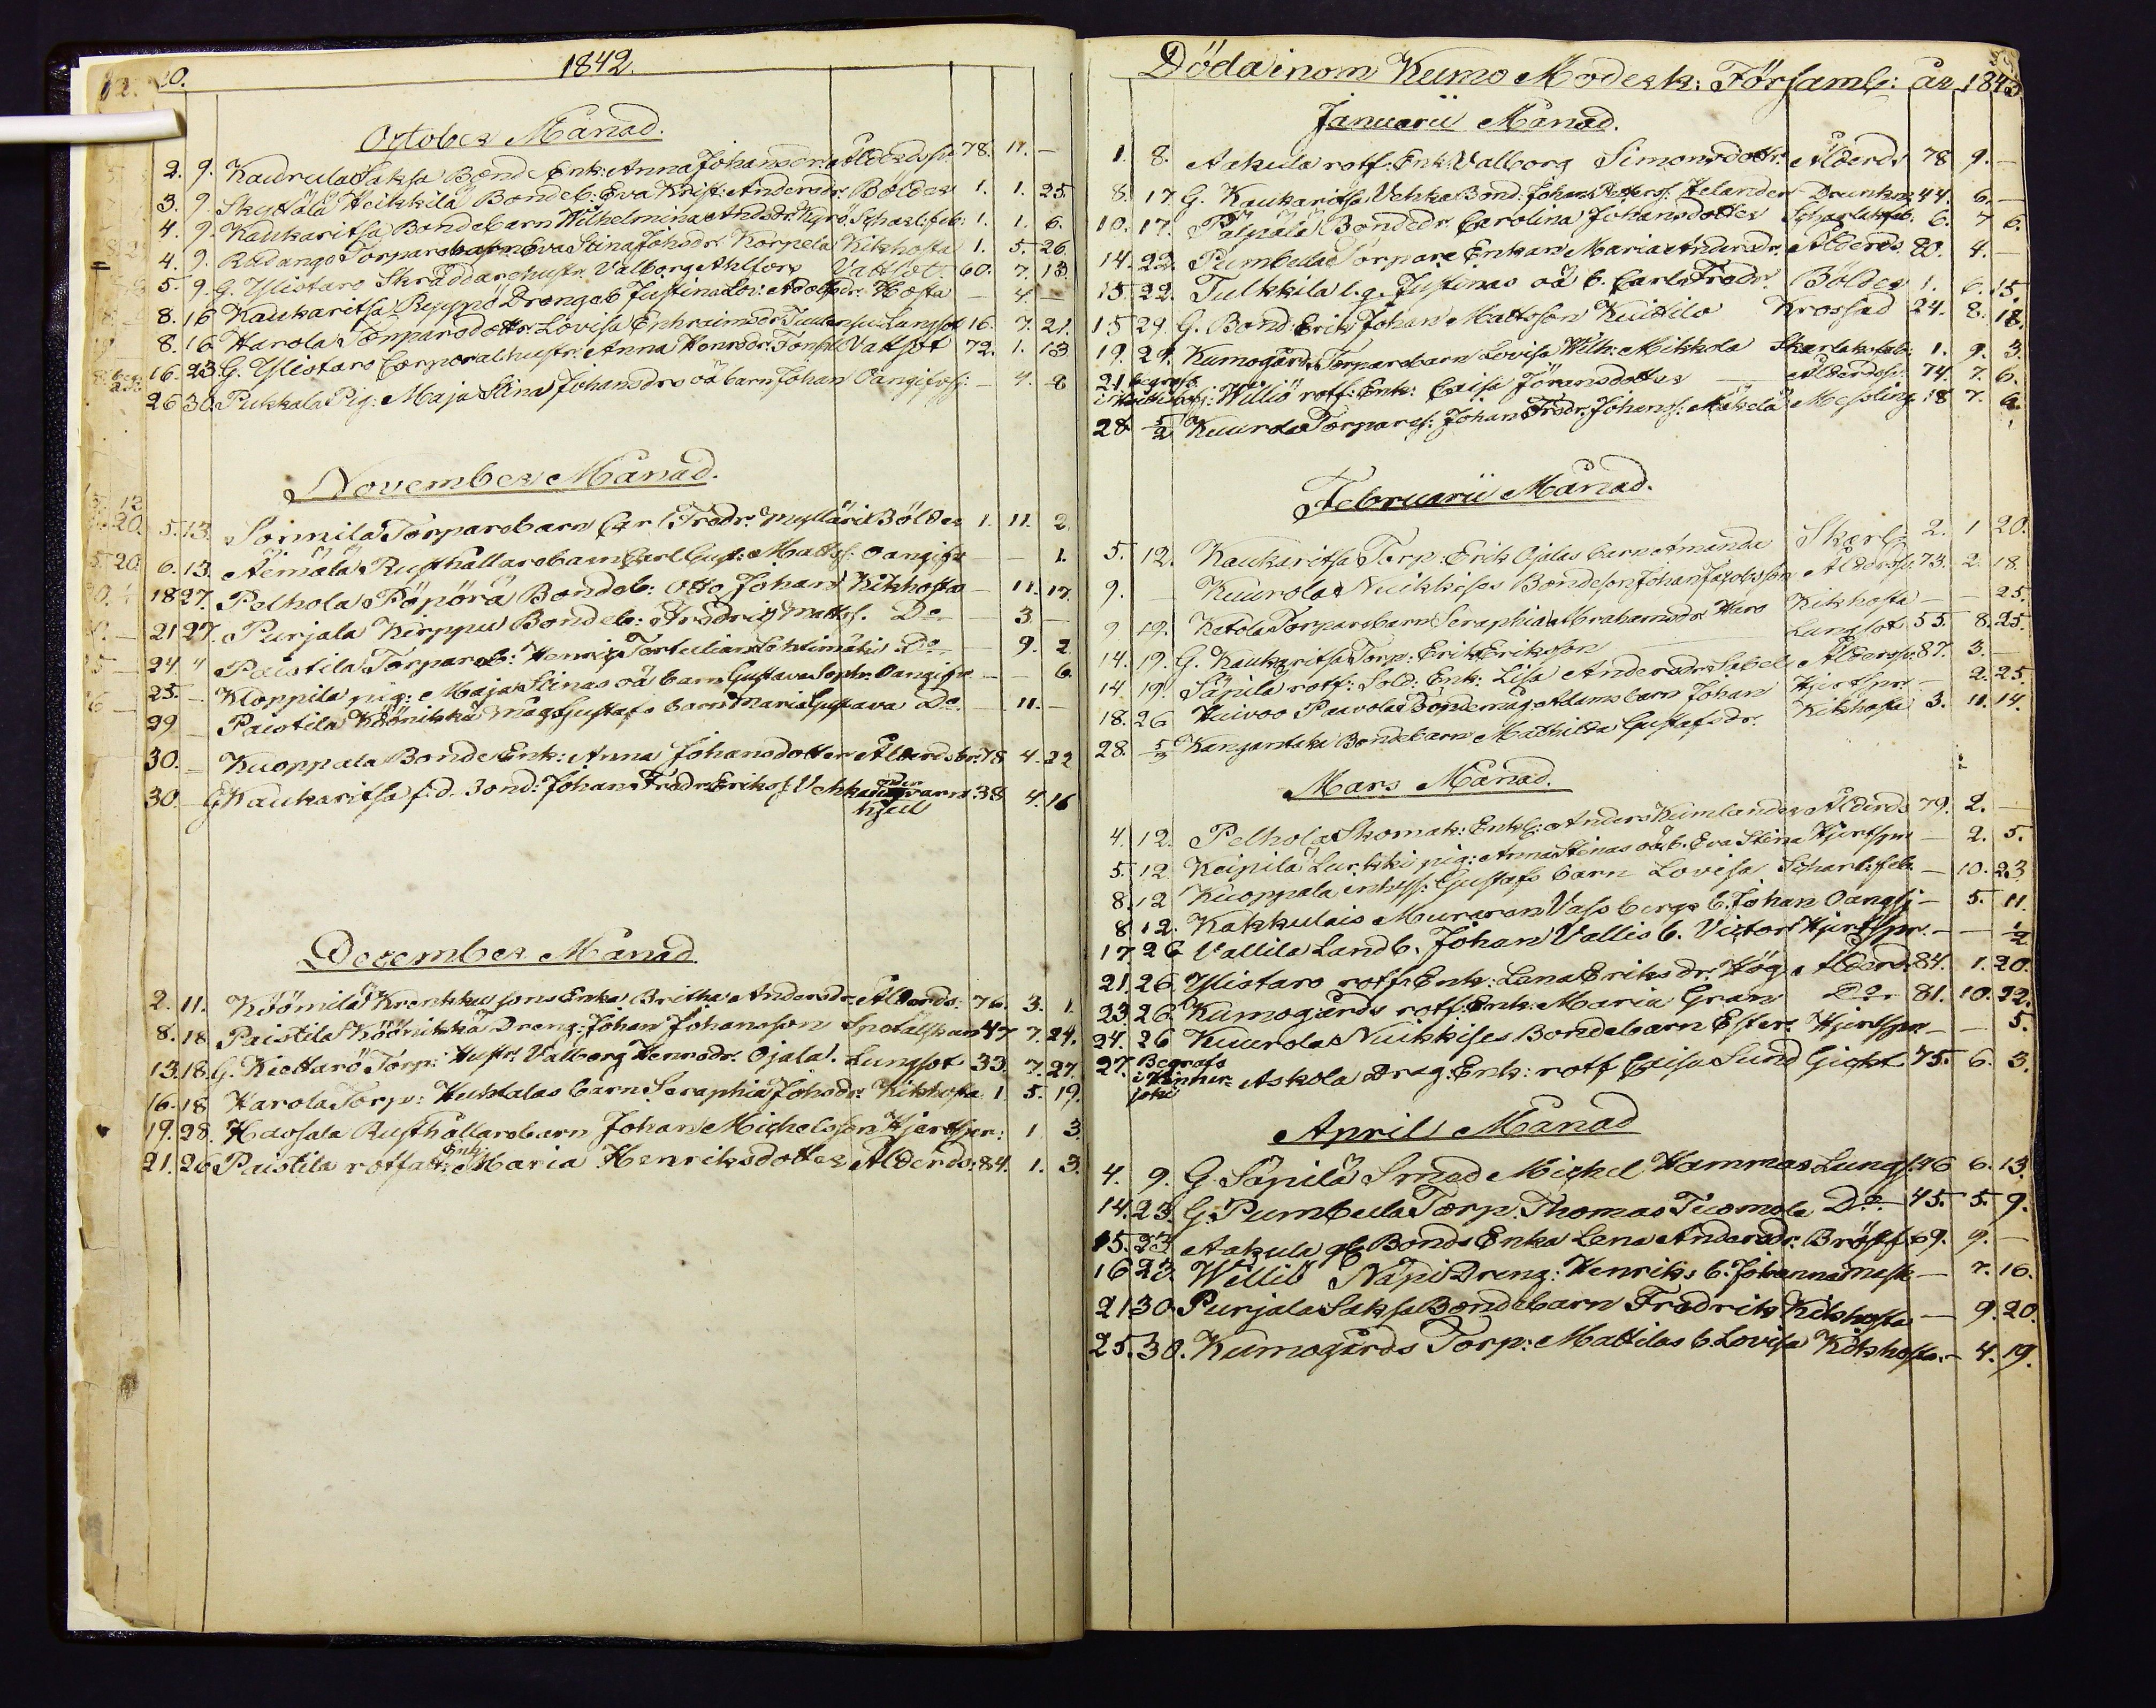 20.
1842.
October Månad.
2. 9. Kaurula Saksa Bond Enk: Anna Johansdr. Ålderdsr. 78. 11. —
3. 9. Skyttälä Heikkilä Bondeb. Eva Krist: Andersdr. Bölder 1. 1. 25.
4. 9. Kaukaritsa Bondebarn Wilhelmina Andsdr. Kyro Scharl.feb: 1. 1. 6.
4. 9. Torparebarn Eva Stina Johsdr. Korpela Kikhosta 1. 5. 26.
5. 9. G. Ylistaro Skräddarehustr. Valborg Ahlfors Vattsot 60. 7. 13.
8. 16 Kaukaritsa Drengeb. Justina Lov: Adolfsdr. Hosta — 4. —
8. 16 Harola Torparedottr. Lovisa Enhraimsdr. Lungsot 16. 7. 21.
16. 23. G. Ylistaro Corporalhustr. Anna Henrsdr. Vattsot 72. 1. 13
26 30. Pukkala Pig: Maja Stina Johansdrs oä barn Johan Oangifvg: — 4. 8
November Månad.
5. 13. Sonnila Torparebarn Carl Fredr. Myllari Bölder 1. 11. 2.
6. 13. Äemälä Rusthållarebarn Carl Gust: Matts: Oangifv — — 1.
18 27. Pelhola Pöpörä Bondeb: Otto Johan Kikhosta — 11. 17.
21 27. Purjala Kirppu Bondeb: Fredrig Matts. Do — 3 —
24 " Paistila Torpareb: Henrig Tertulian Lehtimäki Do 9. 2
25. — Kloppila pig: Maja Stinas oä barn Gustava Soph: Oangifv — — 6.
29 — Paistila Köönikkä Måg Gustafs barn Maria Gustava Do. — 11. —
30. — Kuoppala Bonde Enk: Anna Johansdotter Ålderdsbr: 78 4. 22
30. — G Kaukaritsa f.d. Bond: Johan Fredr. Eriks. Vehka under qvarn 38 4. 16
hjul
December Månad.
2. 11. Köömilä Krenkku sons Enka Britha Andersdr. Ålderds: 76. 3. 1.
8. 18. Paistila Köönikkä Dreng: Johan Johansson 47 7. 24.
13. 18. G. Kiettarö Torp: Hustr. Valborg Henrsdr. Ojala. Lungsot 33. 7. 27.
16. 18 Harola Torp: Huhtalas barn Seraphia Johsdr. Kikhosta 1 5. 19.
19. 28. Haosala Rusthållarebarn Johan Michelsson Hjertspr: 1 3.
21. 26 Paistila rotfatt: Enk: Maria Henriksdotter Ålderds: 84. 1. 3.
Döda inom Kumo Moderk: Församl: år 1843.
Januarii Månad.
1. 8. Aakula rotf: Enk: Valborg Simonsdottr. Ålderds 78 9. —
8. 17 G. Kaukaritsa Vehka Bond: Johan Helander Drunkn. 44. 6. —
10. 17. Pälpälä Bondedr. Carolina Johansdotter Scharlakfeb. 6. 7 6.
14. 22. Pumbula Torpare Enkan Maria Andersdr. Ålderds. 80. 4. —
15. 22. Tulkkila l.g. Justinas oä b. Carl Fredr. Bölder 1. 6. 15
15 29. G. Bond Erik Johan Mattsson Kuittilo Krossad 24. 8. 18.
19. 29. Kumogårds Torparebarn Lovisa Wilh: Mikkola Skarlaksfeb: 1. 9. 3.
21 begrofs Williö rotf: Enk: Caisa Göransdotter — Ålderdsr. 74. 7. 6.
28 5/2 Kuurola Torpares: Johan Fredr. Johans: Mäkelä Messling 18 7. 6.
Februarii Månad.
5. 12. Kaukaritsa Torp: Erik Ojalas barn Amanda Skarlf. 2. 1 20.
9. — Kuurola Nuikkises Bondeson Johan Jacobsson Ålderds. 73. 2. 18.
9 19. Ketola Torparebarn Seraphia Abrahamsdr. Haro Kikhosta — — 25.
14. 19. G. Kaukaritsa Torp: Erik Eriksson Lungsot 55. 8. 25.
14. 19. Säpilä rotf: Sold: Enk: Lisa Andersdr. Sabel Ålderds: 87. 3. —
18. 26 Huivoo Paavola Bondemåg Adams barn Johan Hjertspr. — 2. 25.
28. 5/3 Kangantaka Bondebarn Mathilda Gustafsdr. Kikhosta 3. 11. 14.
Mars Månad.
4. 12. Pelhola Skomak: Enkl: Anders Kumlander Ålderds 79. 2. —
5. 12. Keipilä Lurkki pig: Anna Stinas oä b. Eva Stina Hjertspr — 2. 5.
8. 12 Kuoppala inhys: Gustafs barn Lovisa Scharl:feb. — 10. 23
8 12. Kakkulais Muraren Vass bergs b. Johan Oangfj — 5. 11.
17 26 Vallila Landb. Johan Vallis b. Victor Hjertspr. — — 1/2
21. 26. Ylistaro rotf: Enk: Lena Eriksdr. Hög Ålderd: 84. 1. 20.
23 26. Kumogårds rotf: Enk: Maria Gran Do 81. 10. 22.
24. 26 Kuurola Nuikkises Bondebarn Ester: Hjertspr — — 5.
27. Begrafs i Hinner joki Askola Drag: Enk: rotf Caisa Sund Gickt 75. 6. 3.
April Månad
4. 9. G. Säpilä Smed Michel Hammar Lungs: 46 6. 13.
14. 23. G. Pumbula Torp. Thomas Tuomola Do — 45. 5. 9.
15. 23 Aakula gl. Bonds Enka Lena Andersdr. Bröstf. 69. 9. —
16 23. Williö Näpi Dreng: Henriks b. Johanna Mask — 7. 16.
21 30. Purjala Saksa Bondebarn Fredrik Kikhosta — 9. 20.
25. 30. Kumogårds Torp: Mattilas b. Lovisa Kikhosta. — 4. 19.